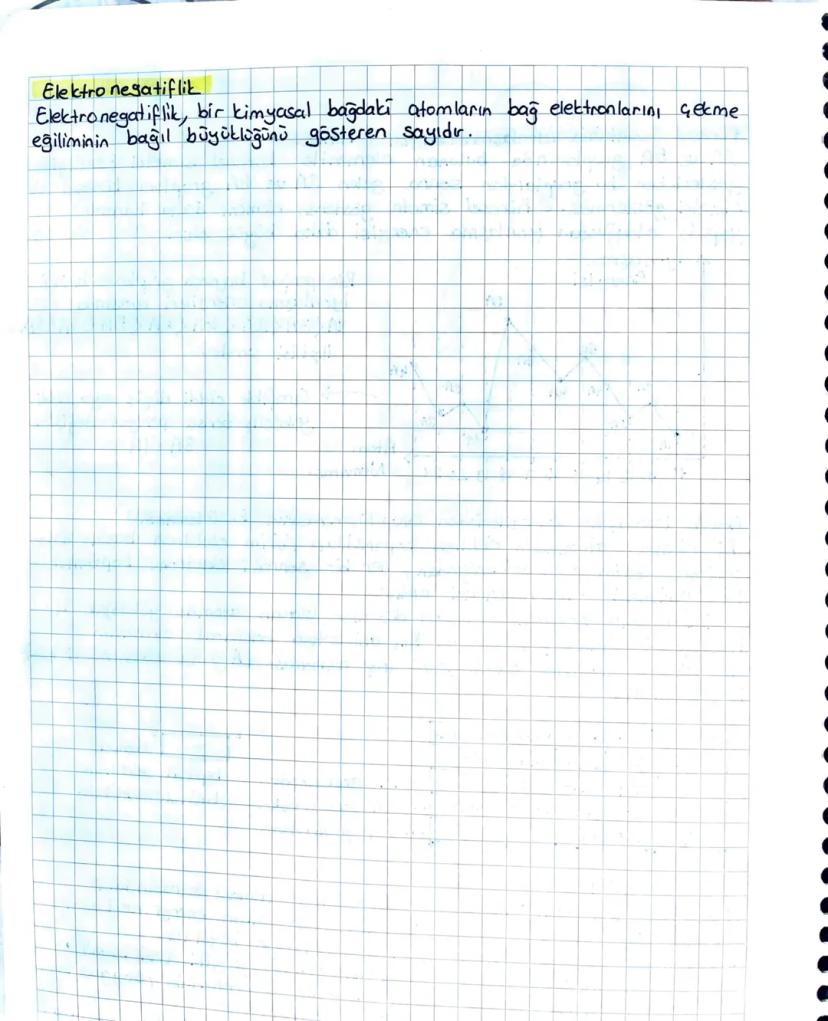 Elektronegatiflik
Elektronegatiflik, bir kimyasal bağdaki atomların bağ elektronlarını çekme
eğiliminin bağıl büyüklüğünü gösteren sayıdır.